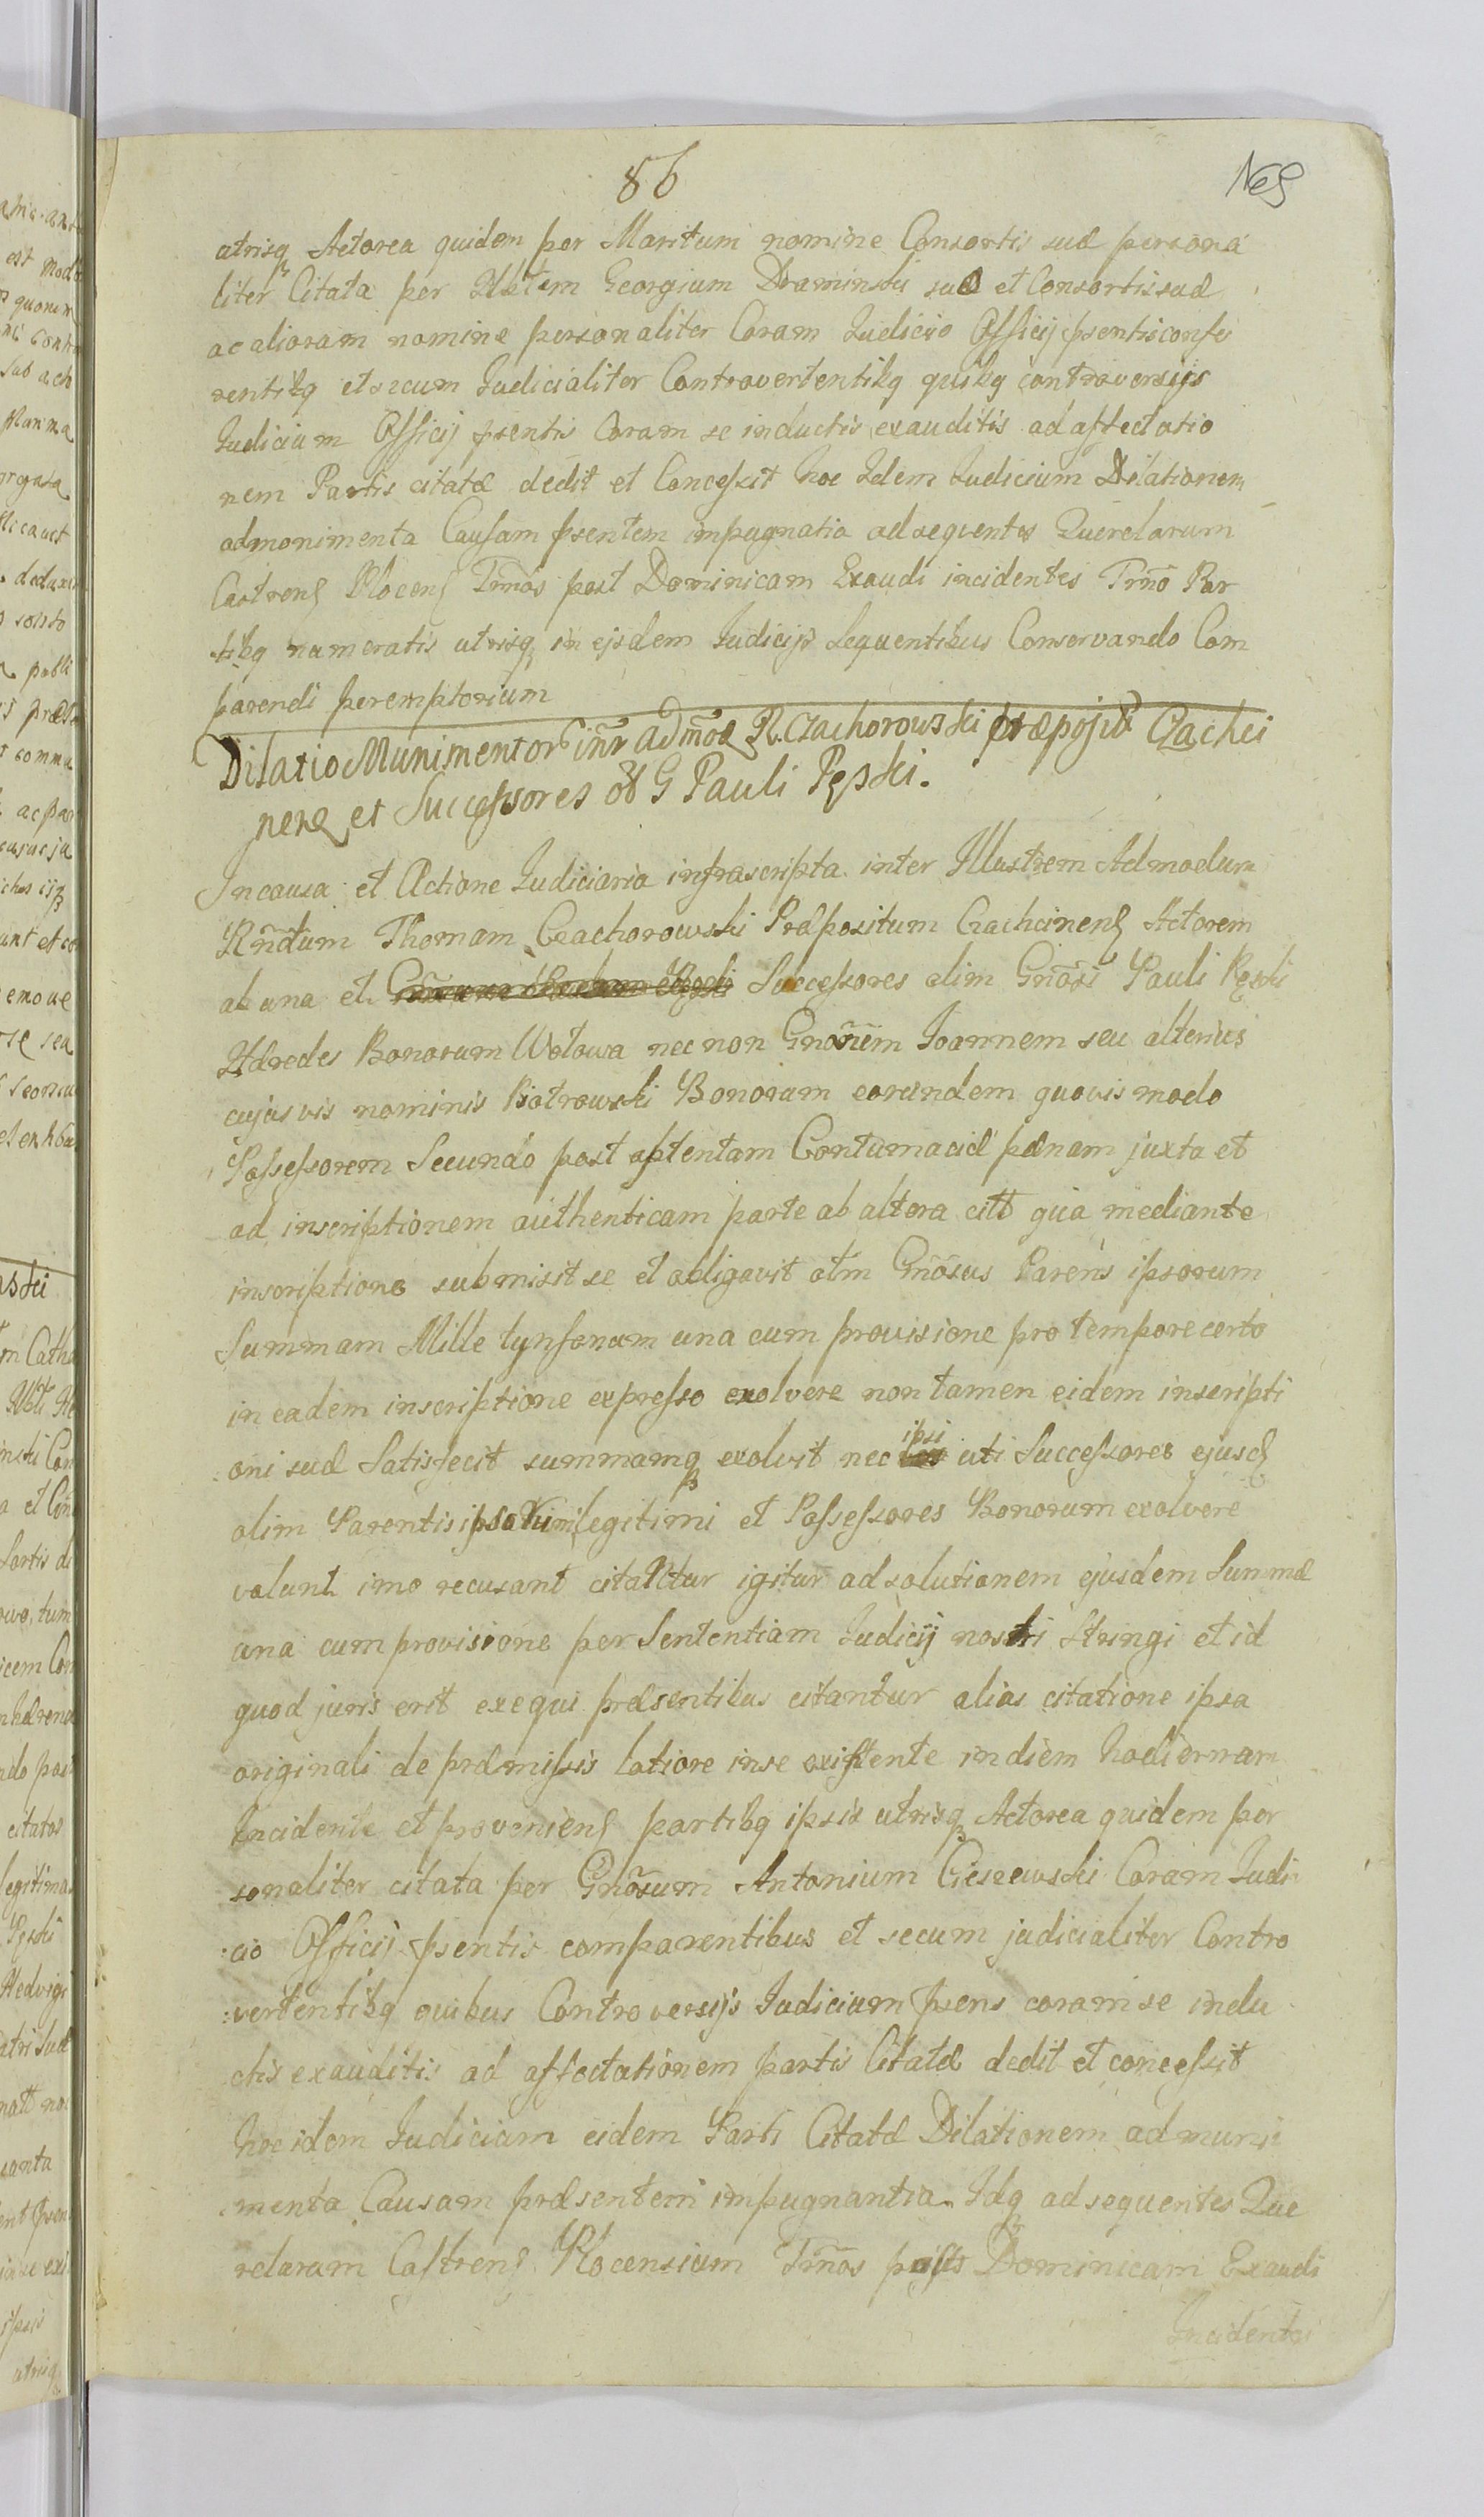 86
utrisq Actorea quidem per Maritum nomine Consortis suæ persona
liter Citata per Georgium Draminski suo et Consortis suæ
ac aliorum nomine personaliter Coram Judicio Officij psentis
rentibq et secum Judicialiter Controvertentibq quibq controversijs
Judicium Officij psentis Coram se inductis exauditis ad affectatio
nem Partis citatæ dedit et Concessit hoc Idem Judicium Dilationem
admonimenta Causam psentem impugnatia ad sequentes Querelarum
Castrens Plocens Trmõs post Dominicam Exaudi incidentes Trm̃o Par
tibq numeratis utrisq in ejsdem Judicijs Sequentibus Conservando Com
parendi peremptorium
Dilatio Munimentor inr̃ Adm̃od R. Czachorowski præposit Czachci
nens et Successores ol G Pauli Pęski.
In causa et Actione Judiciaria infrascripta inter Illustrem Admodum
Rñdum Thomam Czachorowski Præpositum Czachcinens Actorem
ab una et Successores olim Gñosi Pauli Pęski
Hæredes Bonorum Wolowa nec non Gnõrem Joannem seu alterius
cujusvis nominis Piotrowski Bonorum eorundem quovis modo
Possessorem Secundo post aptentam Contumaciæ pænam juxta et
ad inscriptionem authenticam parte ab altera citt quia mediante
inscriptione submisit se et obligavit olm Gnõsus Parens ipsorum
Summam Mille tynfonum una cum provisione pro tempore certo
in eadem inscriptione expresso exolvere non tamen eidem inscripti
:oni suæ Satisfecit summamq exolvit nec ipsi uti Successores ejusd
olim Parentis ipsorum legitimi et Possessores Bonorum exolvere
volunt imo recusant citantur igitur ad solutionem ejusdem Summæ
una cum provisione per Sententiam Judicij nostri Stringi et id
quod juris erit exequi præsentibus citantur alias citatione ipsa
originali de præmissis latiore in se existente in diem hodiernam
Incidente et proveniens partibq ipsis utrisq Actorea quidem per
sonaliter citata per Gnõsum Antonium Cieszewski Coram Judi
:cio Officij psentis comparentibus et secum judicialiter Contro
:vertentibq quibus Controversijs Judicium psens coram se indu
ctis exauditis ad affectationem partis Citatæ dedit et concessit
hoc idem Judicium eidem Parti Citatæ Dilationem ad muni
menta Causam præsentem impugnantia. Idq ad sequentes Que
relarum Castrens Plocensium Trm̃os post Dominicam Exaudi
Incidentes